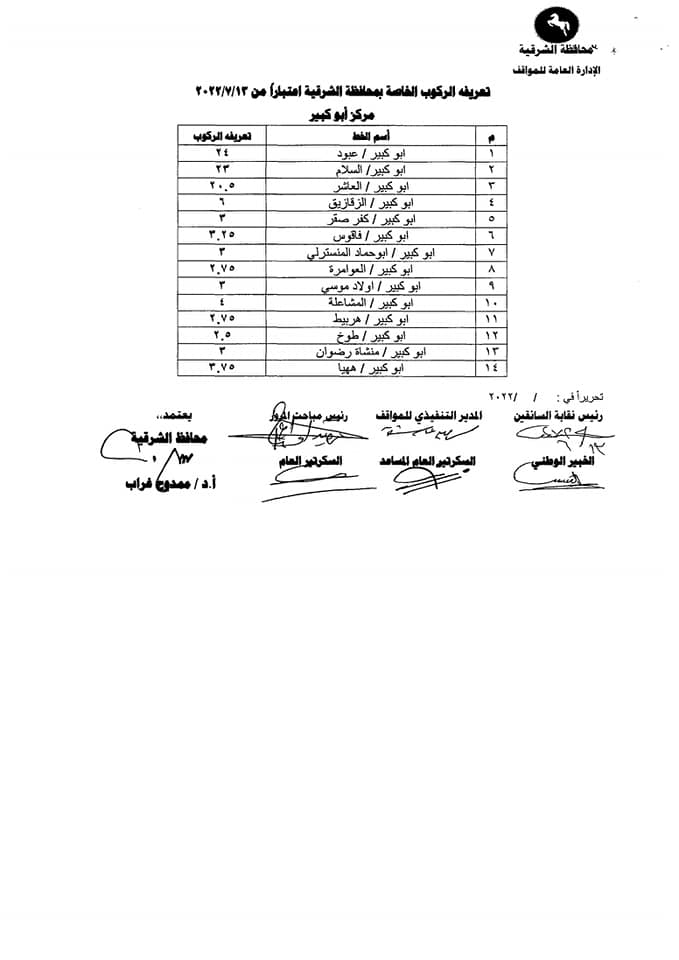 محافظة الشرقية
الإدارة العامة للمواقف
تعريفه الركوب الخاصة بمحافظة الشرقية اعتباراً من ٢٠٢٢/٧/١٣
مركز أبو كبير
م أسم الخط تعريفه الركوب
١ ابو كبير / عبود ٢٤
٢ ابو كبير/ السلام ٢٣
٣ ابو كبير / العاشر ٢٠.٥
٤ ابو كبير / الزقازيق ٦
٥ ابو كبير / كفر صقر ٣
٦ ابو كبير / فاقوس ٣.٢٥
٧ ابو كبير / ابوحماد المنسترلي ٣
٨ ابو كبير / العوامرة ٢.٧٥
٩ ابو كبير / اولاد موسي ٣
١٠ ابو كبير / المشاعلة ٤
١١ ابو كبير / هربيط ٢.٧٥
١٢ ابو كبير / طوخ ٢.٥
١٣ ابو كبير / منشاة رضوان ٣
١٤ ابو كبير / ههيا ٣.٧٥
تحريراً في : / /٢٠٢٢
رئيس نقابة السائقين المدير التنفيذي للمواقف رئيس مباحث المرور يعتمد،،
محافظ الشرقية
الخبير الوطني السكرتير العام المساعد السكرتير العام
أ.د / ممدوح غراب